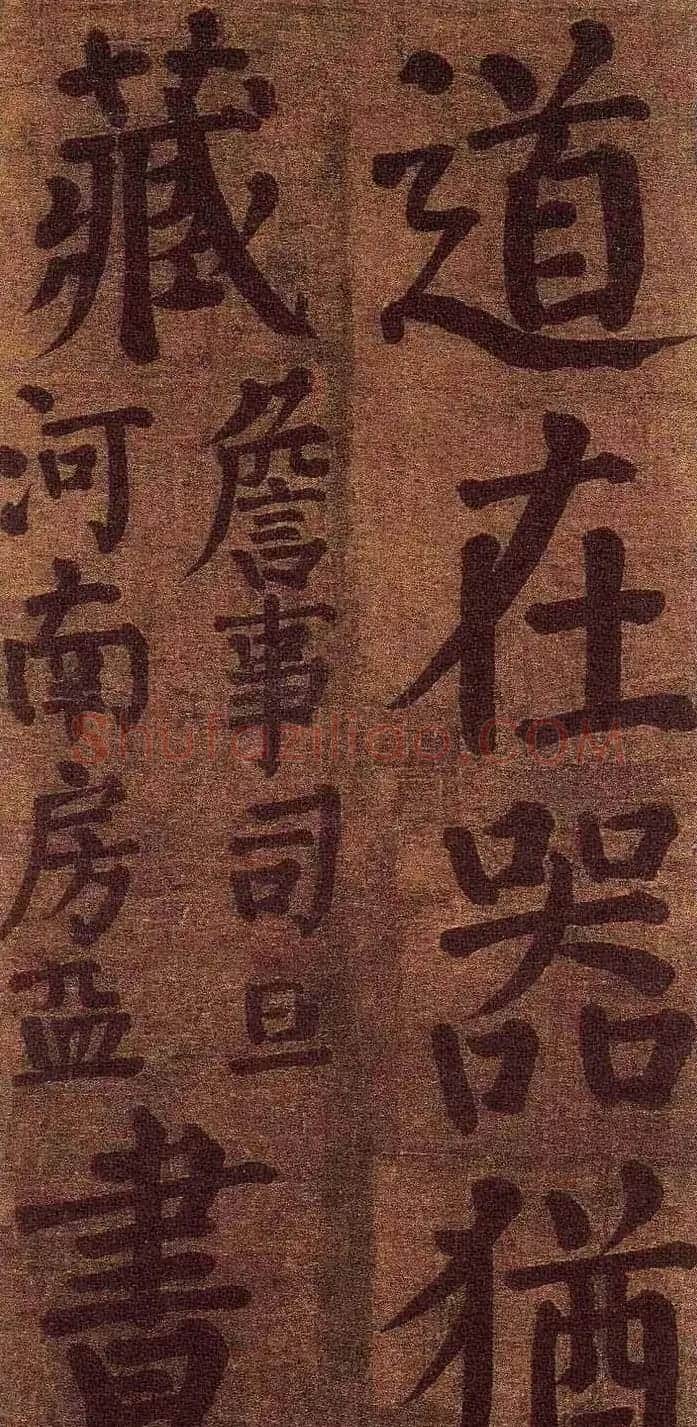 道在器猶
藏
詹事司旦
河南房
書
Shufaziliao.COM